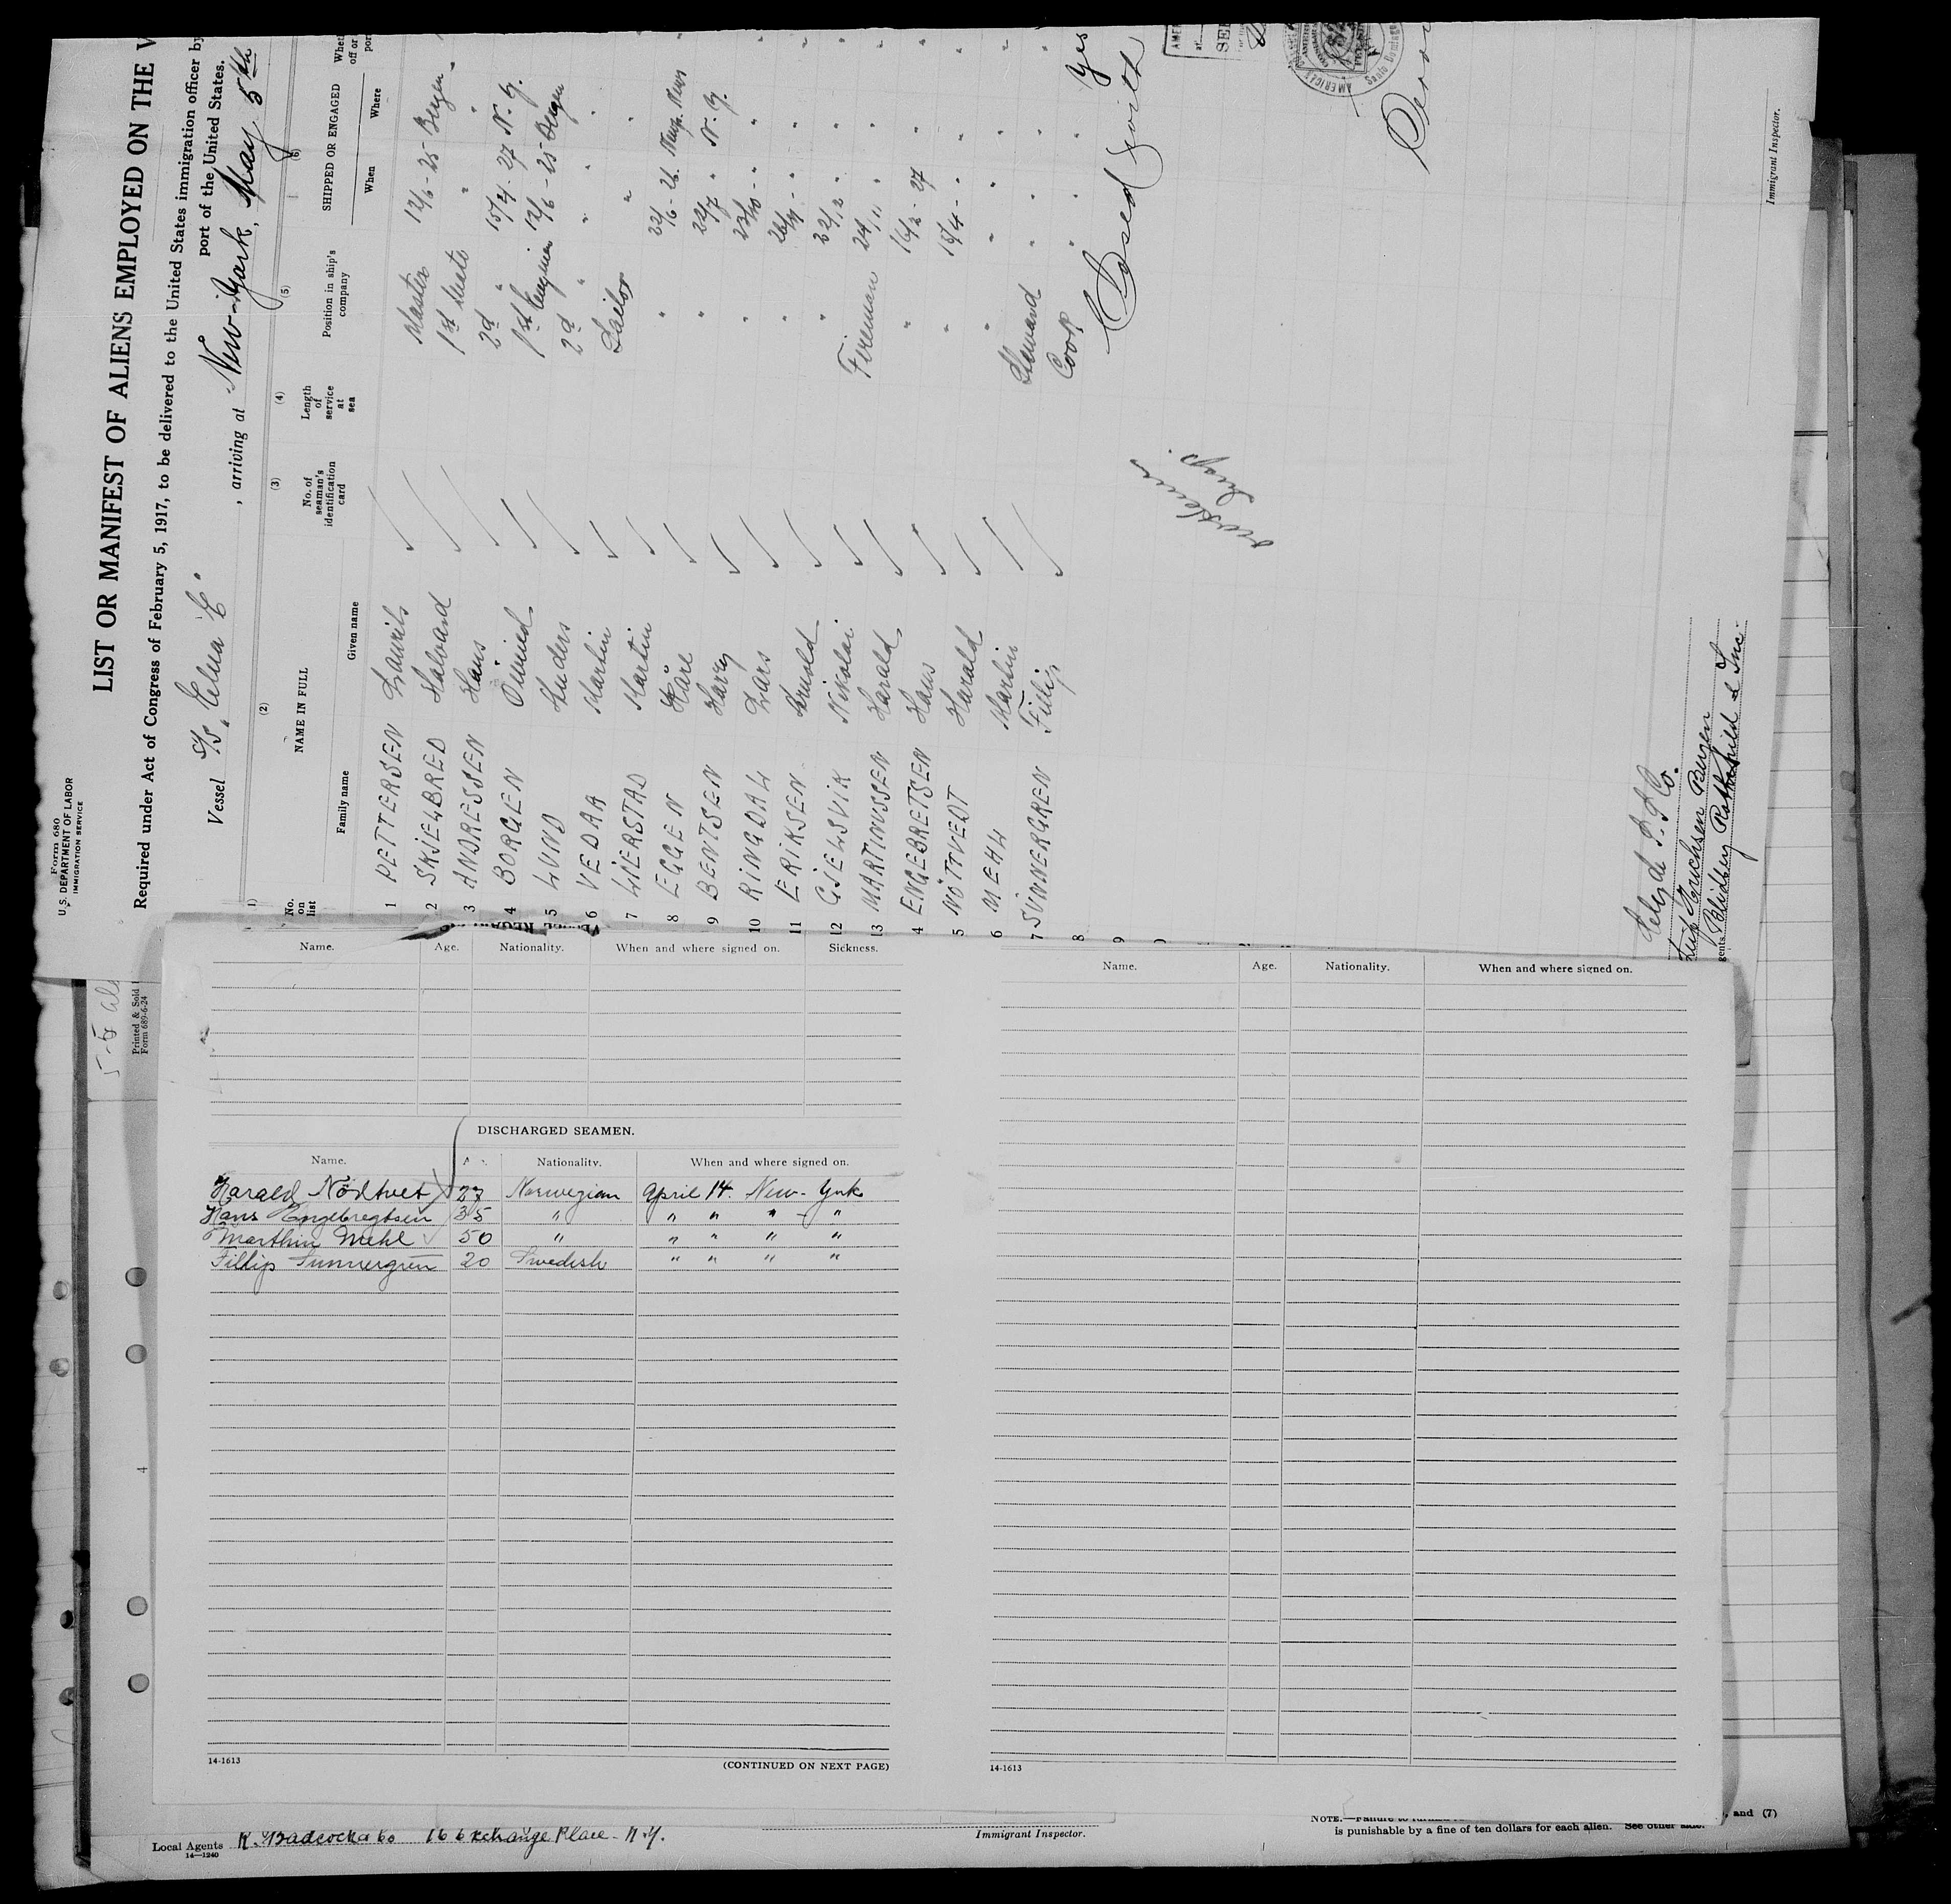 Form 680
U.S. DEPARTMENT OF LABOR
IMMIGRATION SERVICE
LIST OR MANIFEST OF ALIENS EMPLOYED ON THE V
Required under Act of Congress of February 5, 1917, to be delivered to the United States immigration officer by
port of the United States.
Vessel S/S. Elna E. , arriving at New-York, May 5th
(2) (3) (4) (5) (6)
No. on list NAME IN FULL No. of seaman's identification card Length of service at sea Position in ship's company SHIPPED OR ENGAGED
Family name Given name When Where
1 PETTERSEN Laurits Master 12/6 - 25 Bergen
2 SKJELBRED Halvard 1st Mate " "
3 ANDRESSEN Hans 2d " 15/4 - 27 N.Y.
4 BORGEN Öivind 1st Engineer 12/6 - 25 Bergen
5 LUND Anders 2d " " "
6 VEDAA Martin Sailor " "
7 LIERSTAD Martin " 22/6 - 26. Newp. News
8 EGGEN Kåre " 22/7 " N.Y.
9 BENTSEN Harry " 23/10 - " "
10 RINGDAL Lars " "
11 ERIKSEN Arnold " 22/12 " "
12 GJELSVIK Nikolai Fireman 24/11 " "
13 MARTINUSSEN Harald " 16/2 - 27 "
4 ENGEBRETSEN Hans " 15/4 - " "
5 NÖTTVEDT Harald " " " "
6 MEHL Martin Steward " " "
7 SUNNERGREN Fillip Cook " " "
8
9
Closed with Yes
Immigrant Inspector.
Printed & Sold
Form 689-6-24
Name. Age. Nationality. When and where signed on. Sickness.
DISCHARGED SEAMEN.
Name. Nationality. When and where signed on.
Harald Nödtvet 27 Norwegian April 14. New-York
Hans Engebregtsen 35 " " " " - "
Marthin Mehl 50 " " " " "
Fillip Sunnergren 20 Swedish " " " "
14-1613
(CONTINUED ON NEXT PAGE)
Name. Age. Nationality. When and where signed on.
14-1613
4
Local Agents R. Badcock & Co 16 Exchange Place - N.Y.
14—1240
Immigrant Inspector.
NOTE.—Failure to
, and (7)
is punishable by a fine of ten dollars for each alien. See other side.